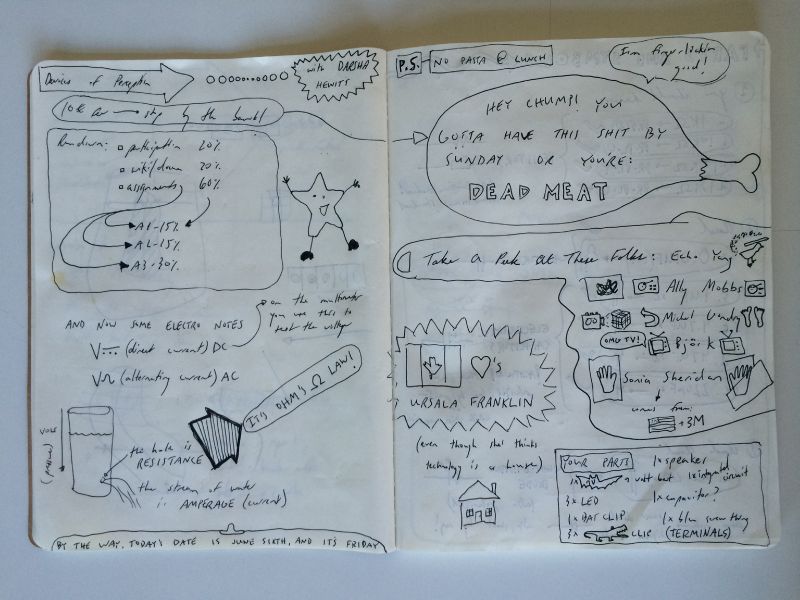 Devices of Perception
with DARSHA
HEWITT
by the
Rundown: participation 20%
wiki/demo 20%
assignments 60%
A1-15%
A2-15%
A3-30%
AND NOW SOME ELECTRO NOTES
on the multimeter
you use this to
test the voltage
V (direct current) DC
V (alternating current) AC
IT'S OHM'S Ω LAW!
VOLTS
(pressure)
the hole is
RESISTANCE
the stream of water
is AMPERAGE (current)
BY THE WAY, TODAY'S DATE IS JUNE SIXTH, AND IT'S FRIDAY
P.S. NO PASTA @ LUNCH
I'm finger-lickin
good!
HEY CHUMP! YOU
GOTTA HAVE THIS SHIT BY
SUNDAY OR YOU'RE:
DEAD MEAT
Take a Peek at These Folks: Echo Yang
Ally Mobbs
Michel Gondry
OMG TV! Björk
Sonia Sheridan
comes from:
+3M
♡'s
URSALA FRANKLIN
(even though she thinks
technology is a house)
YOUR PARTS
1x 9 volt batt
3x LED
1x BAT CLIP
3x CLIP (TERMINALS)
1x speaker
1x integrated circuit
1x capacitor?
1x blue screw thing